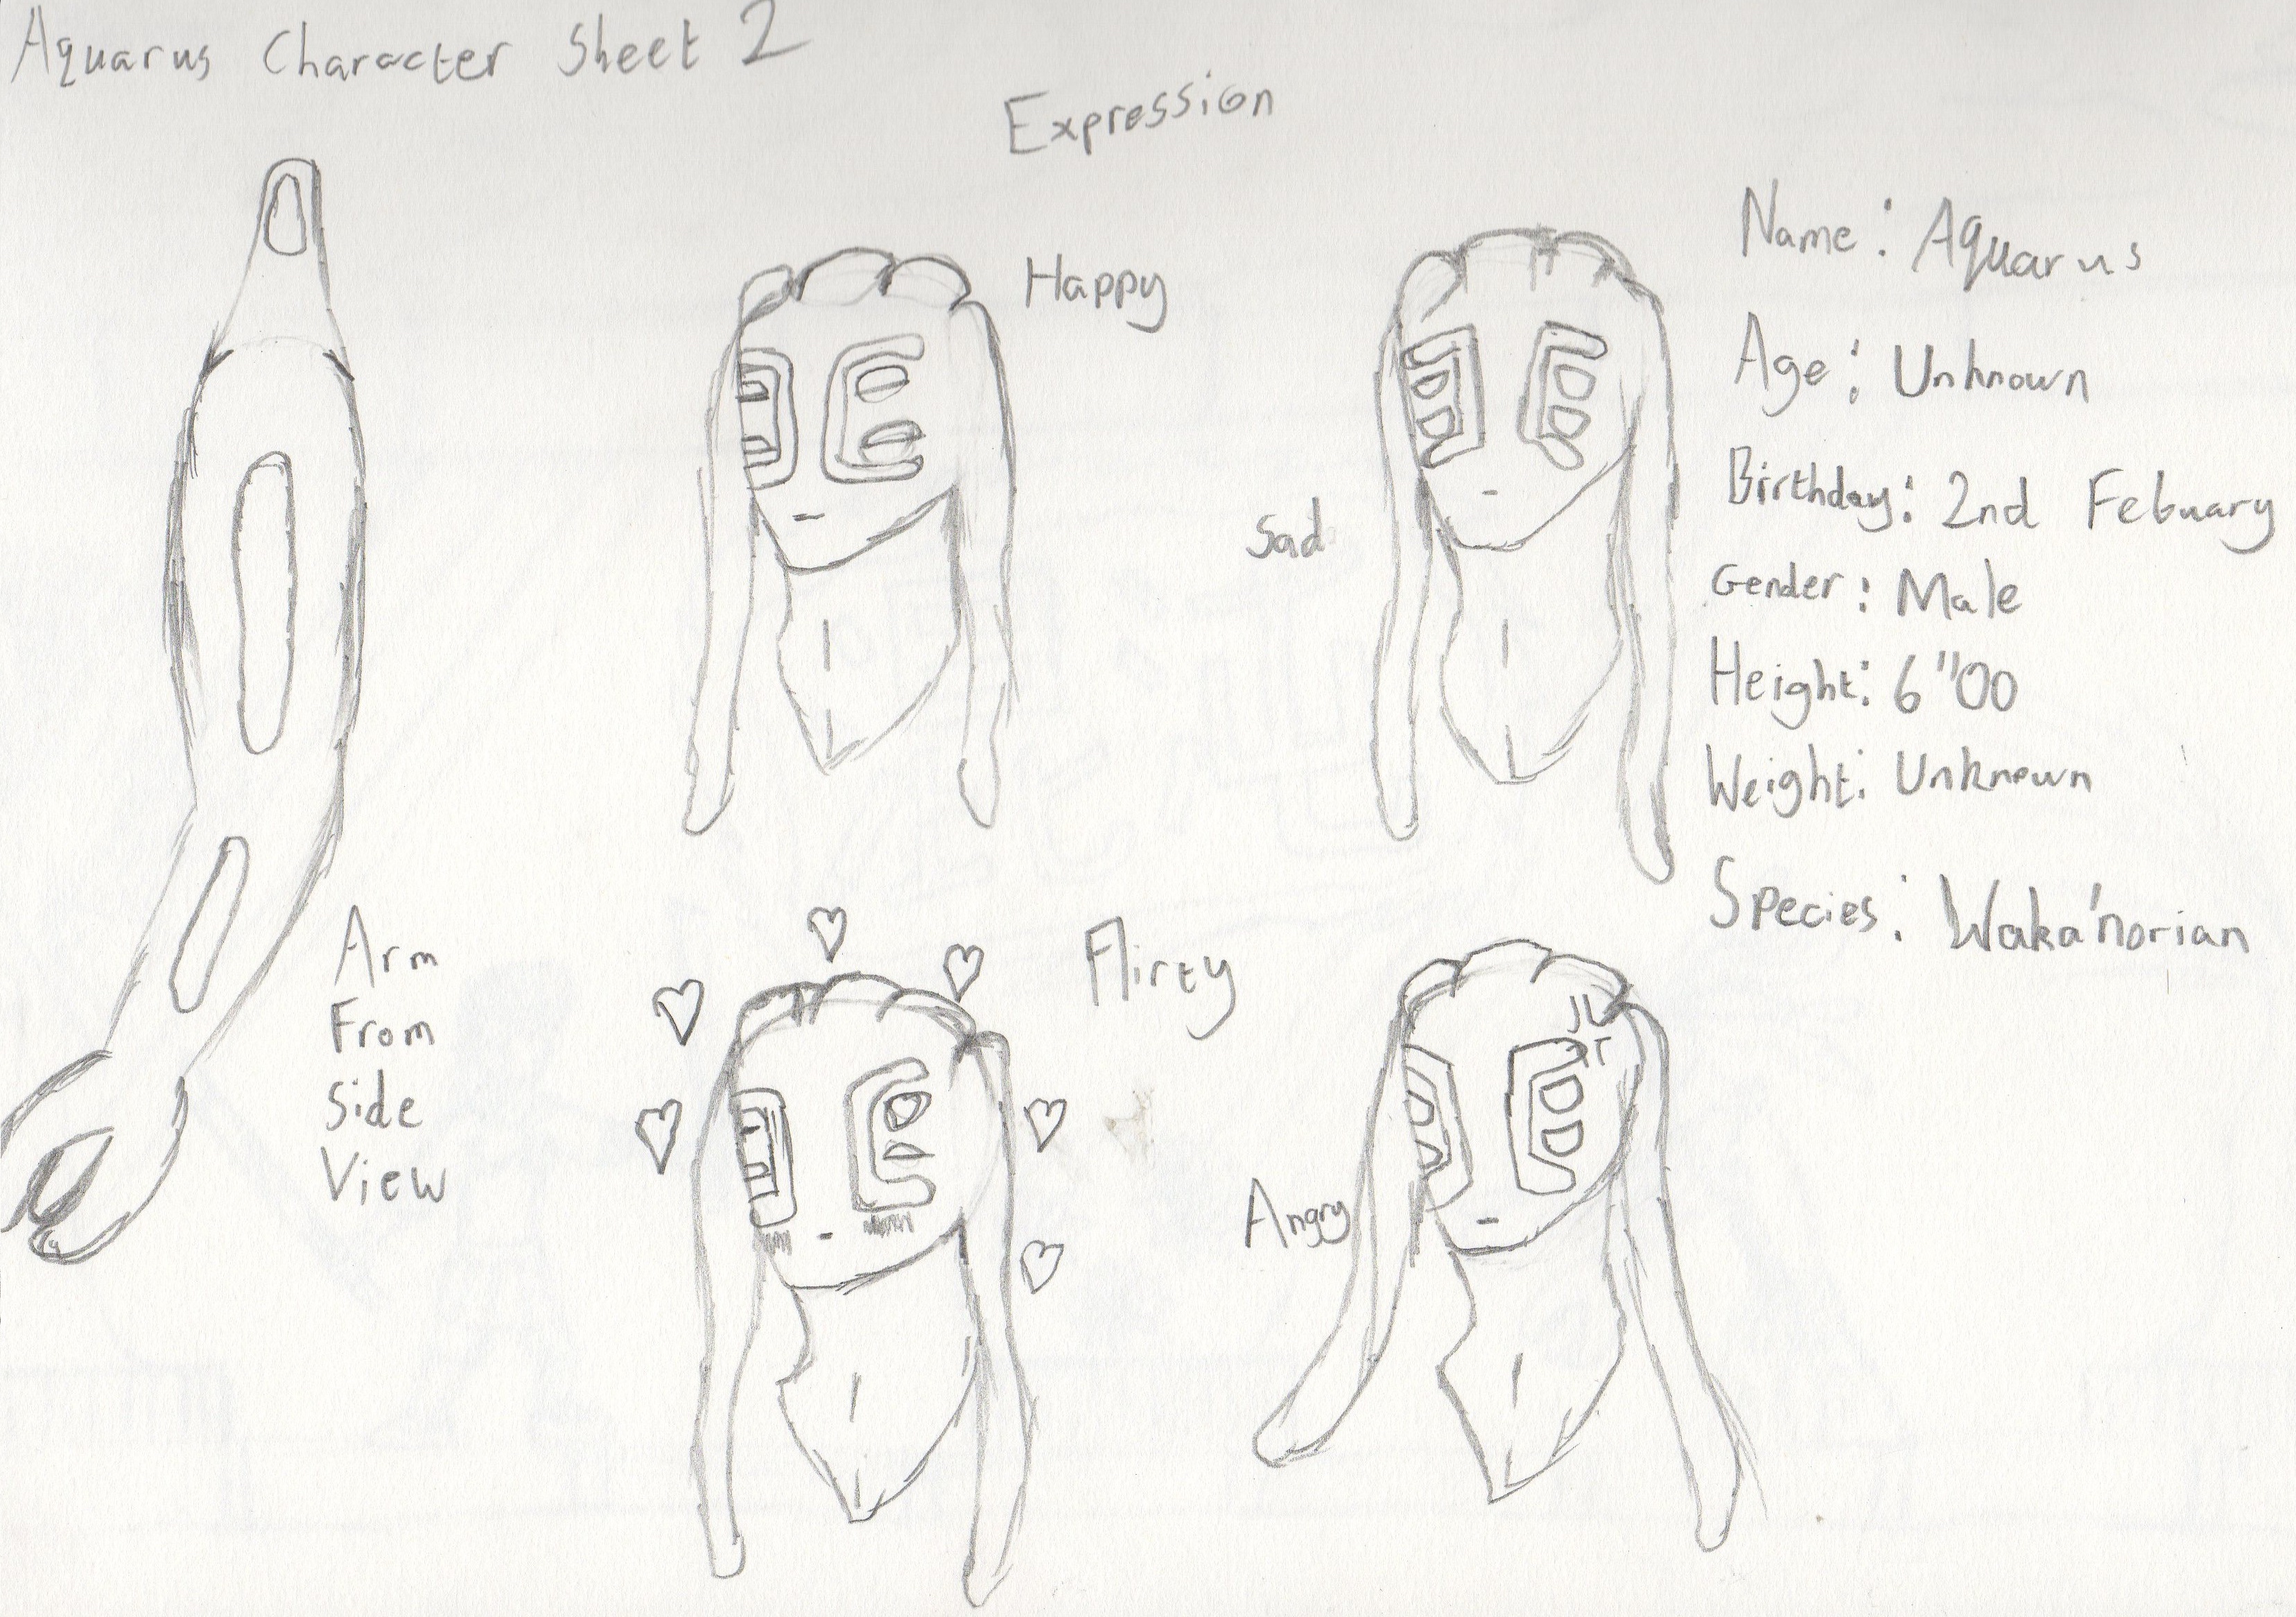 Aquarus Character Sheet 2
Expression
Happy
Sad
Flirty
Angry
Arm
From
Side
View
Name: Aquarus
Age: Unknown
Birthday: 2nd Febuary
Gender: Male
Height: 6"00
Weight: Unknown
Species: Waka'norian